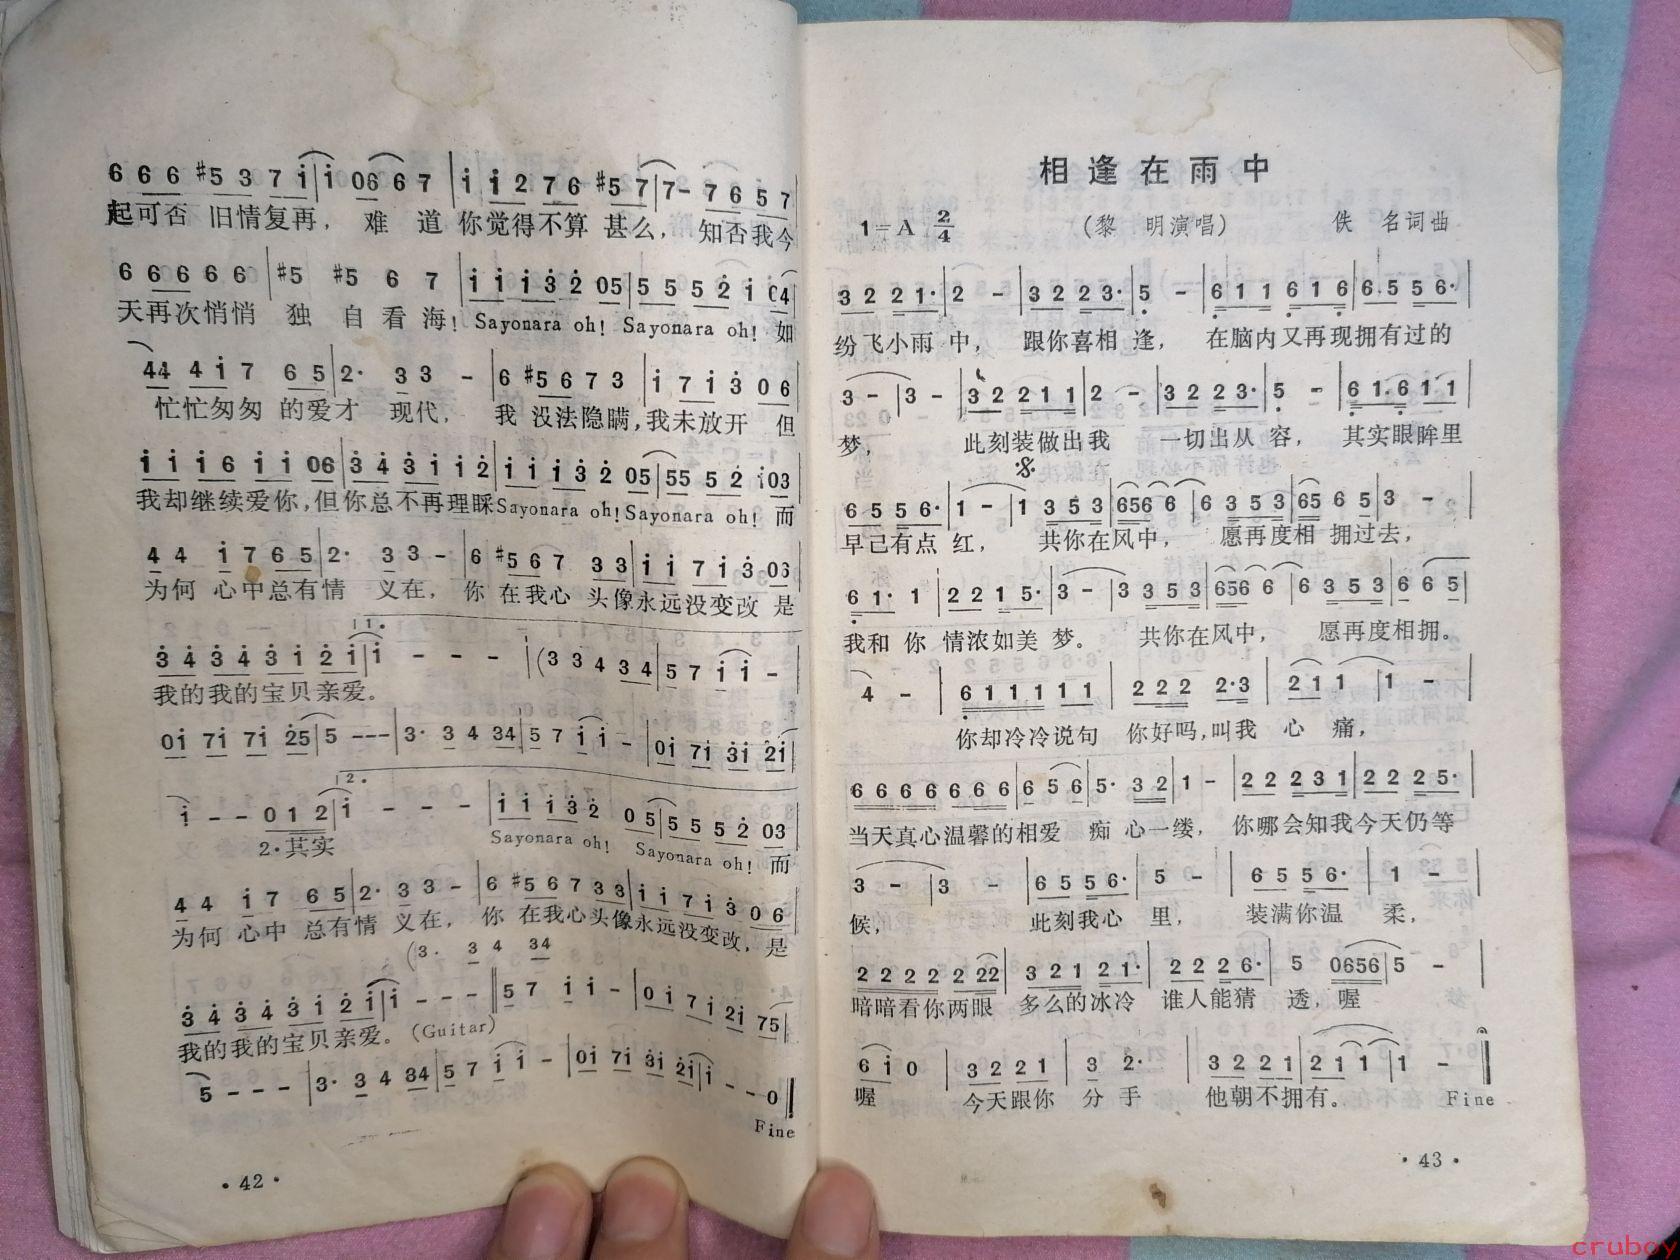 6 6 6 #5 3 7 i | i 06 6 7 | i i 2 7 6 #5 7 | 7- 7 6 5 7
起可否 旧情复再, 难 道 你觉得不算 甚么, 知否我今
6 6 6 6 6 | #5 #5 6 7 | i i i 3 2 05 | 5 5 5 2 i 04
天再次悄悄 独 自看海! Sayonara oh! Sayonara oh! 如
44 4 i 7 6 5 | 2· 3 3 - | 6 #5 6 7 3 | i 7 i 3 0 6
忙忙匆匆 的爱才 现代, 我 没法隐瞒,我未放开 但
i i i 6 i i 06 | 3 4 3 i i 2 | i i i 3 2 05 | 55 5 2 i03
我却继续爱你,但你总不再理睬Sayonara oh!Sayonara oh! 而
4 4 i 7 6 5 | 2· 3 3 - | 6 #5 6 7 3 3 | i i 7 i 3 06
为何 心中总有情 义在, 你 在我心 头像永远没变改 是
1.
3 4 3 4 3 i 2 i | i - - - | (3 3 4 3 4 | 5 7 i i -
我的我的宝贝亲爱。
0i 7i 7i 25 | 5 --- | 3· 3 4 34 | 5 7 i i - | 0i 7i 3i 2i
2.
i - - 0 1 2 | i - - - | i i i 3 2 0 5 | 5 5 5 2 03
2·其实 Sayonara oh! Sayonara oh! 而
4 4 i 7 6 5 | 2· 3 3 - | 6 #5 6 7 3 3 | i i 7 i 3 0 6
为何 心中 总有情 义在, 你 在我心头像永远没变改, 是
(3· 3 4 34
3 4 3 4 3 i 2 i | i - - - || 5 7 i i - | 0 i 7 i 2i 75
我的我的宝贝亲爱。(Guitar)
5 - - - | 3· 3 4 34 | 5 7 i i - | 0i 7i 3i 2i | i - - 0
Fine
·42·
相逢在雨中
1=A 2/4 (黎 明演唱) 佚 名词曲
3 2 2 1· | 2 - | 3 2 2 3· | 5 - | 6 1 1 6 1 6 | 6 5 5 6·
纷飞小雨 中, 跟你喜相 逢, 在脑内又再现拥有过的
3 - | 3 - | 3 2 2 1 1 | 2 - | 3 2 2 3· | 5 - | 6 1·6 1 1
梦, 此刻装做出我 一切出从 容, 其实眼眸里
𝄋
6 5 5 6· | 1 - | 1 3 5 3 | 656 6 | 6 3 5 3 | 65 6 5 | 3 -
早己有点 红, 共你在风中, 愿再度相 拥过去,
6 1· 1 | 2 2 1 5· | 3 - | 3 3 5 3 | 656 6 | 6 3 5 3 | 6 6 5
我和 你 情浓如美 梦。 共你在风中, 愿再度相拥。
4 - | 6 1 1 1 1 1 | 2 2 2 2·3 | 2 1 1 | 1 -
你却冷冷说句 你好吗,叫我 心 痛,
6 6 6 6 6 6 6 | 6 5 6 | 5· 3 2 | 1 - | 2 2 2 3 1 | 2 2 2 5·
当天真心温馨的相爱 痴 心一缕, 你哪会知我今天仍等
3 - | 3 - | 6 5 5 6· | 5 - | 6 5 5 6· | 1 -
候, 此刻我心 里, 装满你温 柔,
2 2 2 2 2 22 | 3 2 1 2 1· | 2 2 2 6· | 5 0656 | 5 -
暗暗看你两眼 多么的冰冷 谁人能猜 透,喔
6 i 0 | 3 2 2 1 | 3 2· | 3 2 2 1 | 2 1 1 | 1 -
喔 今天跟你 分 手 他朝不拥有。 Fine
·43·
cruboy